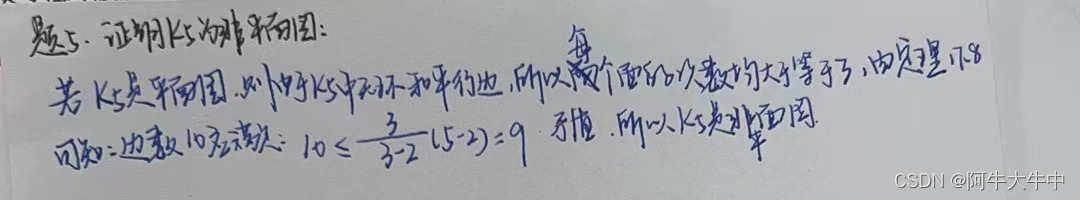 题5. 证明K5为非平面图:
若K5是平面图,则由于K5中无环和平行边,所以每个面的次数均大于等于3,由定理17.8
可知:边数10应满足: 10 ≤ 3/(3-2) (5-2) = 9 矛盾.所以K5是非平面图.
CSDN @阿牛大牛中